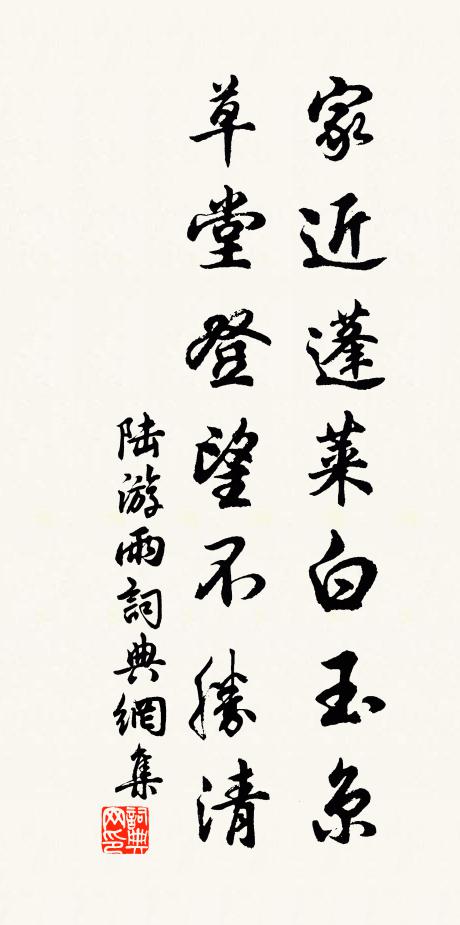 家近蓬萊白玉京
草堂登望不勝清
陸游雨詞典網集
詞典
网印